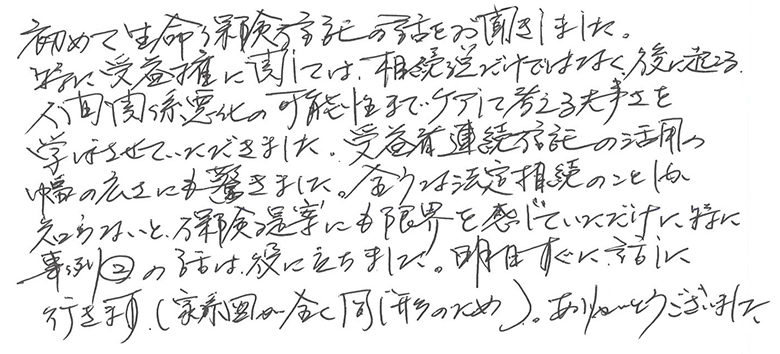 初めて生命保険信託の話をお聞きしました。
特に受益権に関しては、相続発だけではなく、後に起こる
人間関係悪化の可能性までケアして考える大事さを
学ばさせていただきました。受益者連続信託の活用の
幅の広さにも驚きました。今は法定相続のことしか
知らないと、保険提案にも限界を感じていただけに、特に
事例②の話は役に立ちました。明日すぐに話しに
行きます(家系図が全く同じ形のため)。ありがとうございました